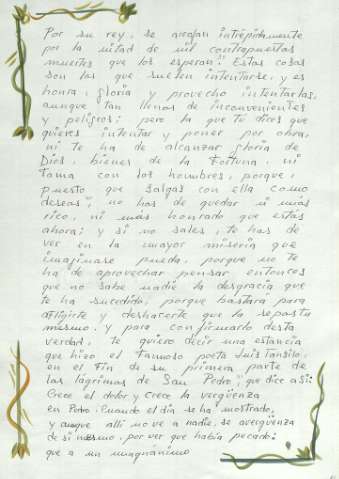 Por su rey, se arrojan intrépidamente
por la mitad de mil contrapuestas
muertes que los esperan. Estas cosas
son las que suelen intentarse, y es
honra, gloria y provecho intentarlas,
aunque tan llenas de inconvenientes
y peligros; pero la que tú dices que
quieres intentar y poner por obra,
ni te ha de alcanzar gloria de
Dios, bienes de la Fortuna, ni
Fama con los hombres, porque,
puesto que salgas con ella como
deseas, no has de quedar ni más
rico, ni más honrado que estás
ahora; y si no sales, te has de
ver en la mayor miseria que
imaginarse pueda, porque no te
ha de aprovechar pensar entonces
que no sabe nadie la desgracia que
te ha sucedido, porque bastará para
afligirte y deshacerte que la sepas tú
mesmo. y para confirmación desta
verdad, te quiero decir una estancia
que hizo el Famoso poeta Luis Tansilo,
en el Fin de su primera parte de
las lágrimas de San Pedro, que dice así:
Crece el dolor y Crece la vergüenza
en Pedro. Cuando el día se ha mostrado,
y aunque allí no ve a nadie, se avergüenza
de si mesmo, por ver que había pecado:
que a un magnánimo